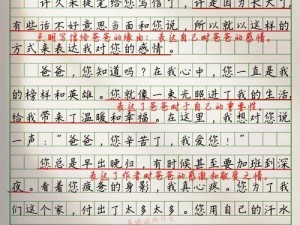 许久未提笔给您写信了，今天，我
有些话不好意思当面和您说，所以就以这样的
点明写信给爸爸的缘由：表达自己对爸爸的感情。
方式来表达我对您的感情。
爸爸，您知道吗？在我心中，您一直是我
的榜样和英雄。您就像一束光照进了我的生活，
表达了爸爸对于自己的重要性。
给我带来了温暖和幸福。在这里，我想对您说
一声：“爸爸，您辛苦了，我爱您！”
您总是早出晚归，有时候甚至要加班到深
表达了作者对爸爸的感激和敬爱之情。
夜。看着您疲惫的身影，我真心疼。您为了我
们这个家，付出了太多太多。您用自己的汗水